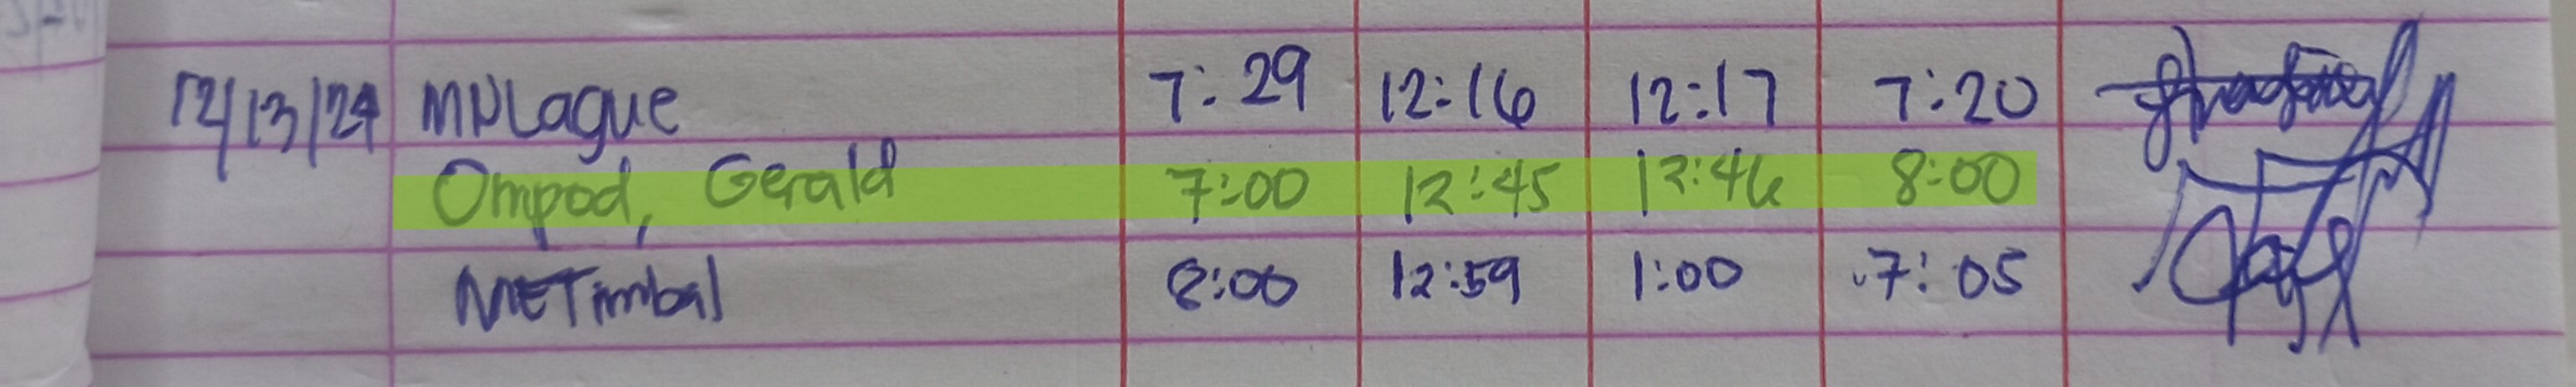 12/13/24 MNLague 7:29 12:16 12:17 7:20
Ompod, Gerald 7:00 12:45 12:46 8:00
METimbal 8:00 12:59 1:00 7:05